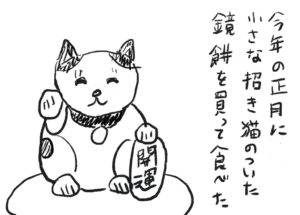 今年の正月に
小さな招き猫のついた
鏡餅を買って食べた
開運